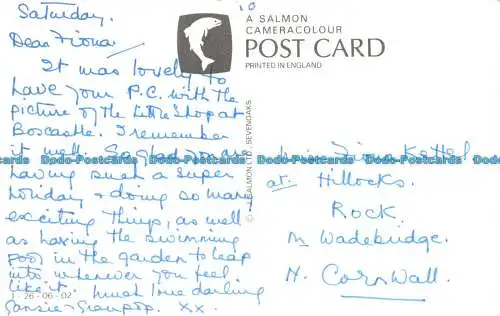 Saturday.
Dear Fiona
It was lovely to
have your P.C. with the
picture of the little shop at
Boscastle. I remember
it well. So glad you are
having such a super
holiday & doing so many
exciting things, as well
as having the swimming
pool in the garden to leap
into whenever you feel
like it. Much love darling
Gansie & Grandpop. xx.
1-26-06-02
10
A SALMON
CAMERACOLOUR
POST CARD
PRINTED IN ENGLAND
© J. SALMON LTD. SEVENOAKS
Fiona
at: Hillocks.
ROCK.
Nr Wadebridge.
N. Cornwall.
Dodo-Postcards Dodo-Postcards Dodo-Postcards Dodo-Postcards Dodo-Postcards